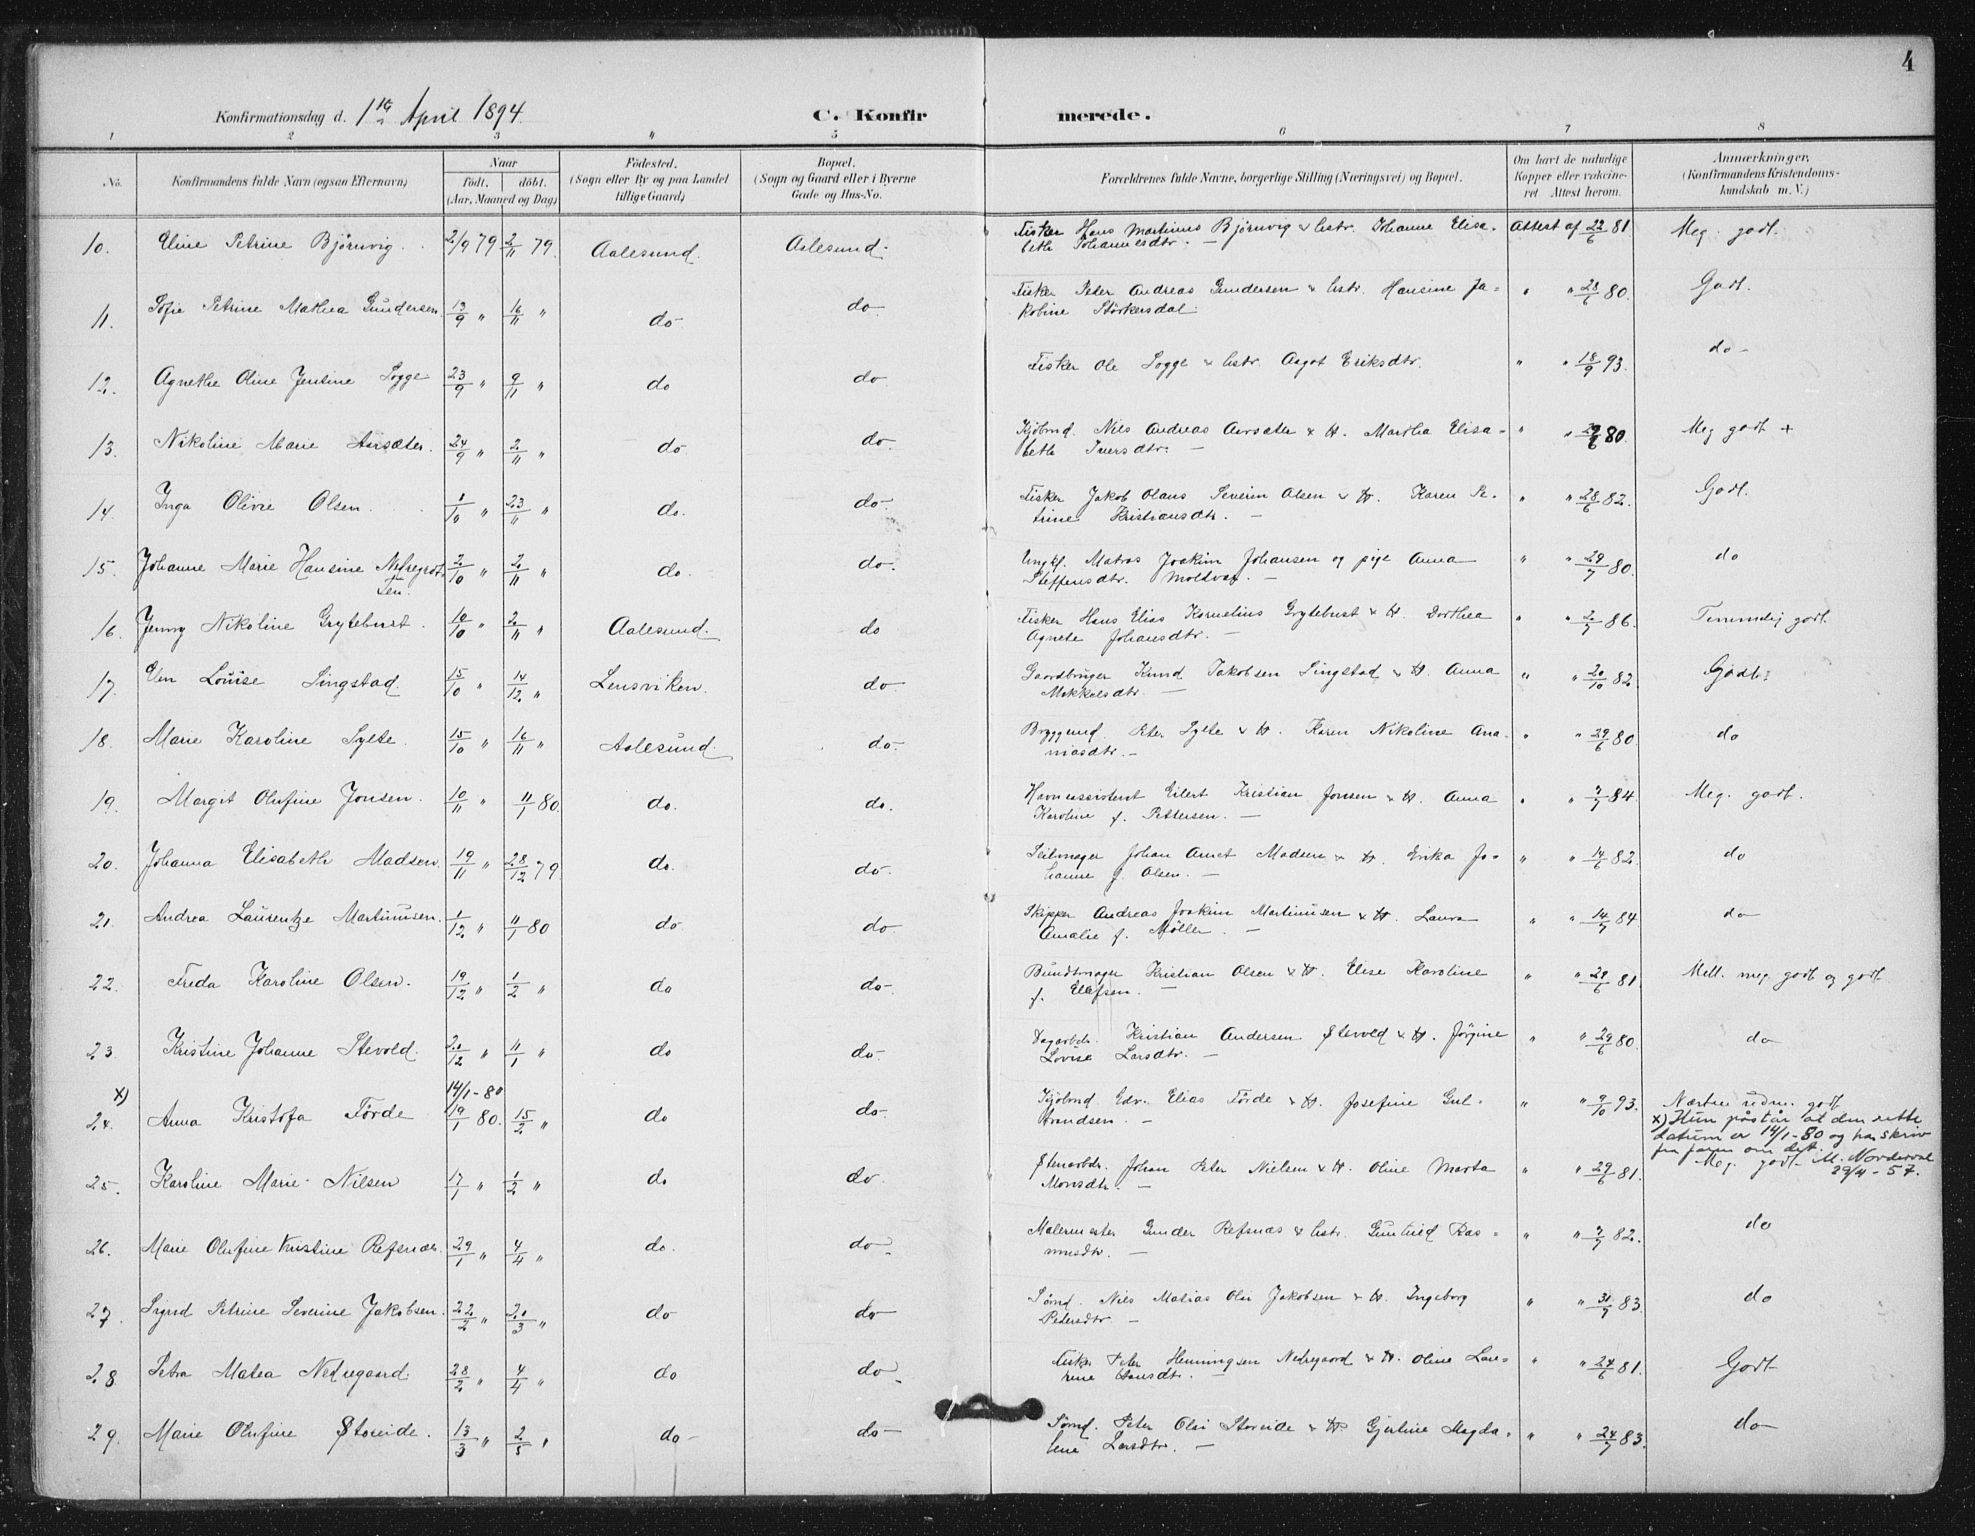 4
Konfirmationsdag d. 1ste April 1894. C. Konfirmerede.
1 2 3 " 5 6 7 8
No. Konfirmandens fulde Navn (ogsaa Efternavn) Naar födt. döbt. (Aar, Maaned og Dag) Födested. (Sogn eller By og paa Landet tillige Gaard) Bopæl. (Sogn og Gaard eller i Byerne Gade og Hus-No. Forældrenes fulde Navne, borgerlige Stilling (Næringsvei) og Bopæl. Om havt de naturlige Kopper eller vakcineret Attest herom. Anmærkninger. (Konfirmandens Kristendomskundskab m. V.)
10. Eline Petrine Bjørnvig. 2/9 79 2/11 79. Aalesund. Aalesund. Fisker Hans Martinus Bjørnvig & hstr. Johanne Elisa-
beth Johannesdtr. — Attest af 22/6 81 Meg. godt.
11. Sofie Petrine Mathea Gundersen 13/9 " 16/11 " do do Fisker Peter Andreas Gundersen & hstr. Hansine Ja-
kobine Störkersdal. " " 28/6 80. Godt.
12. Agnethe Oline Jensine Sogge 23/9 " 9/11 " do do Fisker Ole Sogge & hstr. Aagot Eriksdtr. " " 18/9 93. do
13. Nikoline Marie Aarsæter. 24/9 " 2/11 " do do. Kjöbmd. Nils Andreas Aarsæter & H. Martha Elisa-
beth Iversdtr. — " " 80. Meg godt +
14. Inga Olivie Olsen. 1/10 " 23/11 " do. do Fisker Jakob Olaus Severin Olsen & H. Karen Pe-
trine Kristiansdtr. — " " 28/6 82. Godt.
15. Johanne Marie Hansine Nedregot-
ten. 2/10 " 2/11 " do. do. Ungkl. Matros Joakim Johansen og pige Anna
Steffensdtr. Moldvær. — " " 29/7 80. do
16. Jenny Nikoline Grytebust. 10/10 " 2/11 " Aalesund. do Fisker Hans Elias Kornelius Grytebust & H. Dorthea
Agnete Johansdtr. " " 2/7 86. Temmelig godt.
17. Louise Singstad. 15/10 " 14/12 " Lensviken. do Gaardbruger Knud Jakobsen Singstad & H. Anna
Mikkelsdtr. — " " 20/10 82. Godt.
18. Marie Karoline Sylte. 15/10 " 16/11 " Aalesund. do. Bryggemd. Peter Sylte & H. Karen Nikoline Ana-
niasdtr. — " " 29/6 80. do
19. Margit Olufine Jonsen. 10/11 " 11/1 80. do. do. Havneassistent Eilert Kristian Jonsen & H. Anna
Karoline f. Pettersen. — " " 7/7 84 Meg. godt.
20. Johanna Elisabeth Madsen. 19/11 " 28/12 79. do. do. Seilmager Johan Arnet Madsen & H. Erika Jo-
hanne f. Olsen. — " " 14/6 82. do
21. Andrea Laurentze Martinusen. 1/12 " 11/1 80 do do Skipper Andreas Joakim Martinusen & H. Laura
Amalie f. Möller. — " " 14/7 84 do
22. Freda Karoline Olsen. 19/12 " 1/2 " do do. Bundtmager Kristian Olsen & H. Elise Karoline
f. Ellefsen. — " " 29/6 81. Mell. meg godt og godt
23. Kristine Johanne Stevold. 20/12 " 11/1 " do do. Dagarbdr. Kristian Andersen Stevold & H. Jörgine
Lovise Larsdtr. — " " 29/6 80. do
x) 14/1-80
24. Anna Kristofa Förde 19/1 80. 15/2 " do do. Kjöbmd. Edv. Elias Förde & H. Josefine Gul-
brandsen. — " " 9/10 93. Næsten udm. godt
x) Hun påstår at den rette
datum er 14/1-80 og har skriv
fra faren om det. M. Norderval
29/4-57.
25. Karoline Marie Nilsen 17/1 " 1/2 " do do. Stenarbdr. Johan Peter Nielsen & H. Oline Marta
Monsdtr. — " " 29/6 81. Meg. godt
26. Marie Olufine Kristine Refsnæs. 29/1 " 4/4 " do. do. Malermester Gunder Refsnæs & hstr. Gunhild Ras-
musdtr. — " " 7/7 82. do
27. Sigrid Petrine Severine Jakobsen. 22/2 " 20/3 " do do Sömd. Nils Matias Olai Jakobsen & H. Ingeborg
Pedersdtr. — " " 31/7 83. do
28. Petra Matea Nedregaard. 28/2 " 4/4 " do do Fisker Peter Henningsen Nedregaard & H. Oline Lau-
rine Hansdtr. — " " 24/6 81. Godt
29. Marie Olufine Storeide. 13/3 " 2/5 " do do Sömd. Peter Olai Storeide & H. Gjertine Magda-
lene Larsdtr. — " " 24/7 83. do